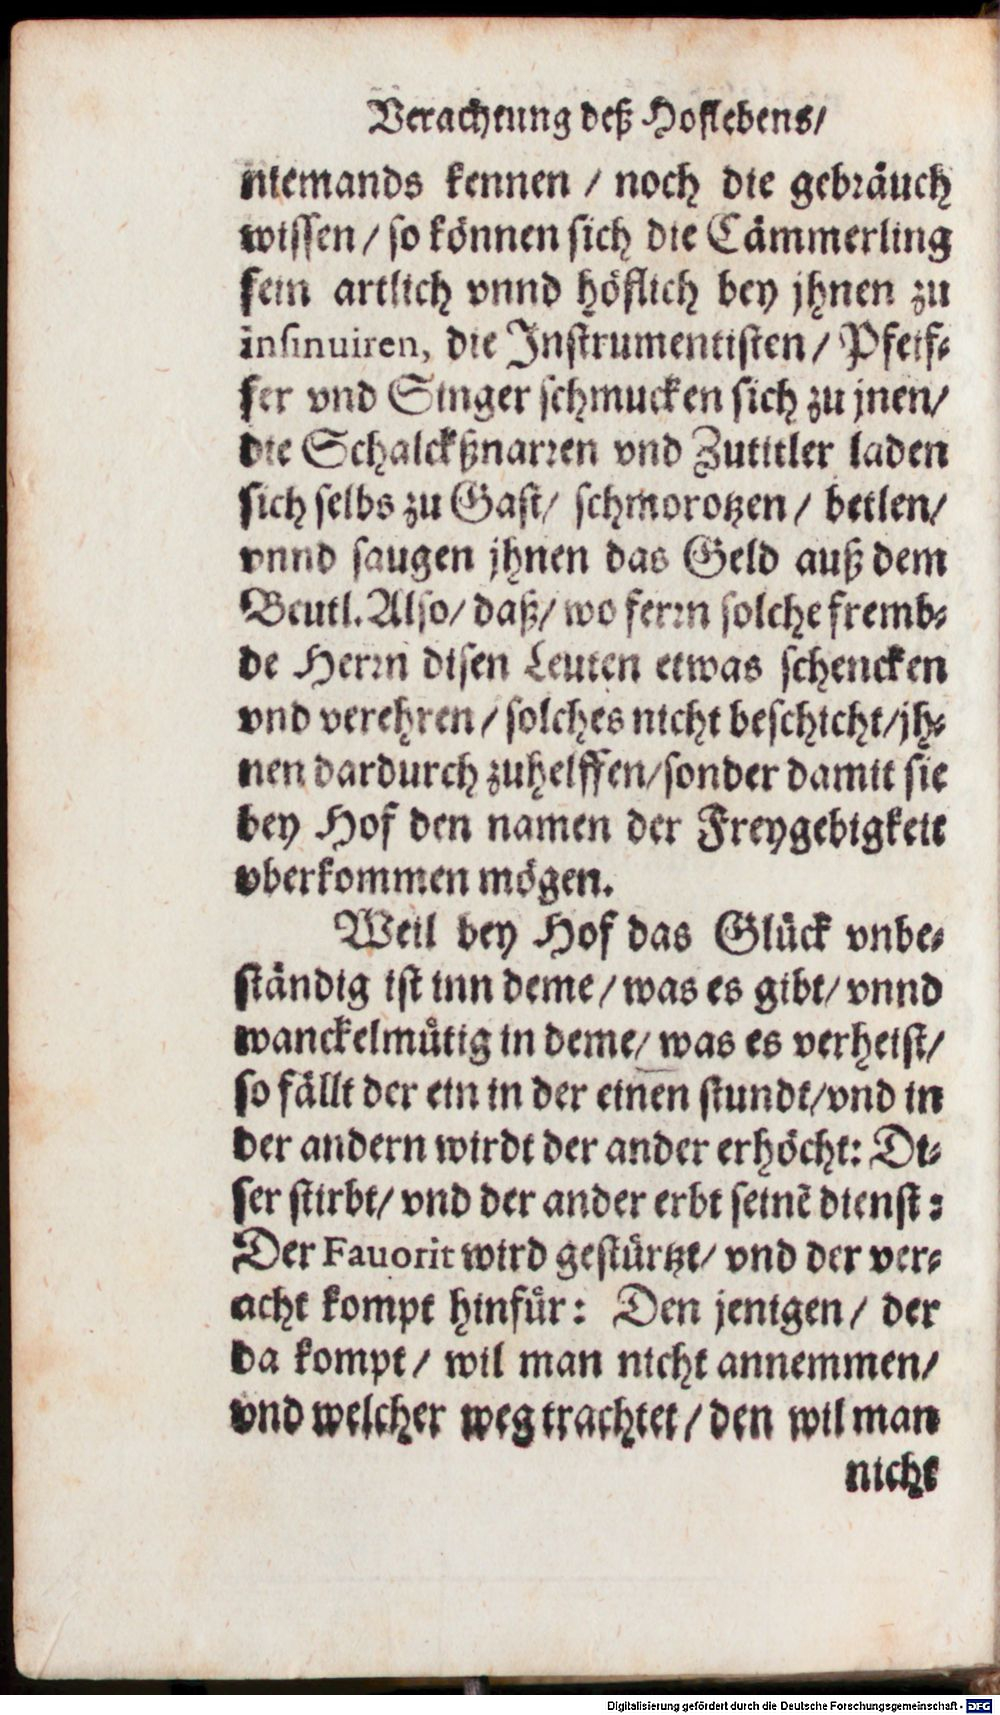 Verachtung deß Hoflebens/
niemands kennen / noch die gebräuch
wissen / so können sich die Cämmerling
fein artlich vnnd höflich bey jhnen zu
insinuiren, die Instrumentisten / Pfeif⸗
fer vnd Singer schmucken sich zu jnen/
die Schalckßnarren vnd Zutitler laden
sich selbs zu Gast/ schmorotzen / betlen/
vnnd saugen jhnen das Geld auß dem
Beutl. Also/ daß/ wo ferrn solche fremb⸗
de Herrn disen Leuten etwas schencken
vnd verehren / solches nicht beschicht/jh⸗
nen dardurch zuhelffen/sonder damit sie
bey Hof den namen der Freygebigkeit
vberkommen mögen.
Weil bey Hof das Glück vnbe⸗
ständig ist inn deme / was es gibt/ vnnd
wanckelmuͤtig in deme/ was es verheist/
so fällt der ein in der einen stundt/vnd in
der andern wirdt der ander erhöcht: Di⸗
ser stirbt/ vnd der ander erbt seinẽ dienst:
Der Fauorit wird gestürtzt/ vnd der ver⸗
acht kompt hinfür: Den jenigen / der
da kompt / wil man nicht annemmen/
vnd welcher weg trachtet / den wil man
nicht
Digitalisierung gefördert durch die Deutsche Forschungsgemeinschaft - DFG